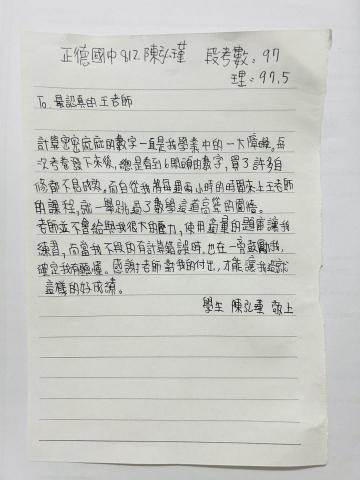 正德國中812陳弘瑾 段考數:97
理:97.5
To 最認真的王老師
計算密密麻麻的數字一直是我學業中的一大障礙。每
次考卷發下來後,總是看到6開頭的數字,買了許多自
修都不見成效。而自從我將每週兩小時的時間來上王老師
的課程,就一舉跳過了數學這道高聳的圍牆。
老師並不會給與我很大的壓力,使用適量的題庫讓我
練習,而當我不段的有計算錯誤時,也在一旁鼓勵我,
確定我有聽懂。感謝老師對我的付出,才能讓我造就
這樣的好成績。
學生 陳弘瑾 敬上